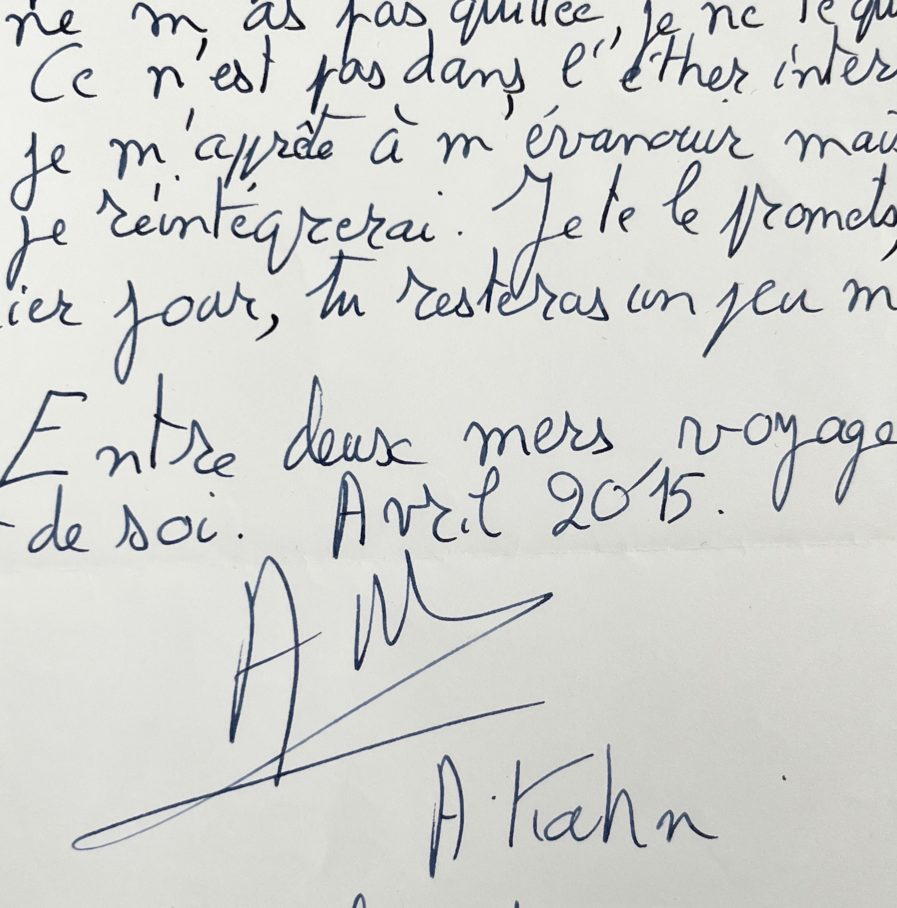 ne m'as pas quittée, je ne te qu
Ce n'est pas dans l'éther inter
je m'apprête à m'évanouir mais
je réintégrerai. Je te le promets,
ier jour, tu resteras un peu m
Entre deux mers, voyage
de soi. Avril 2015.
A. Kahn